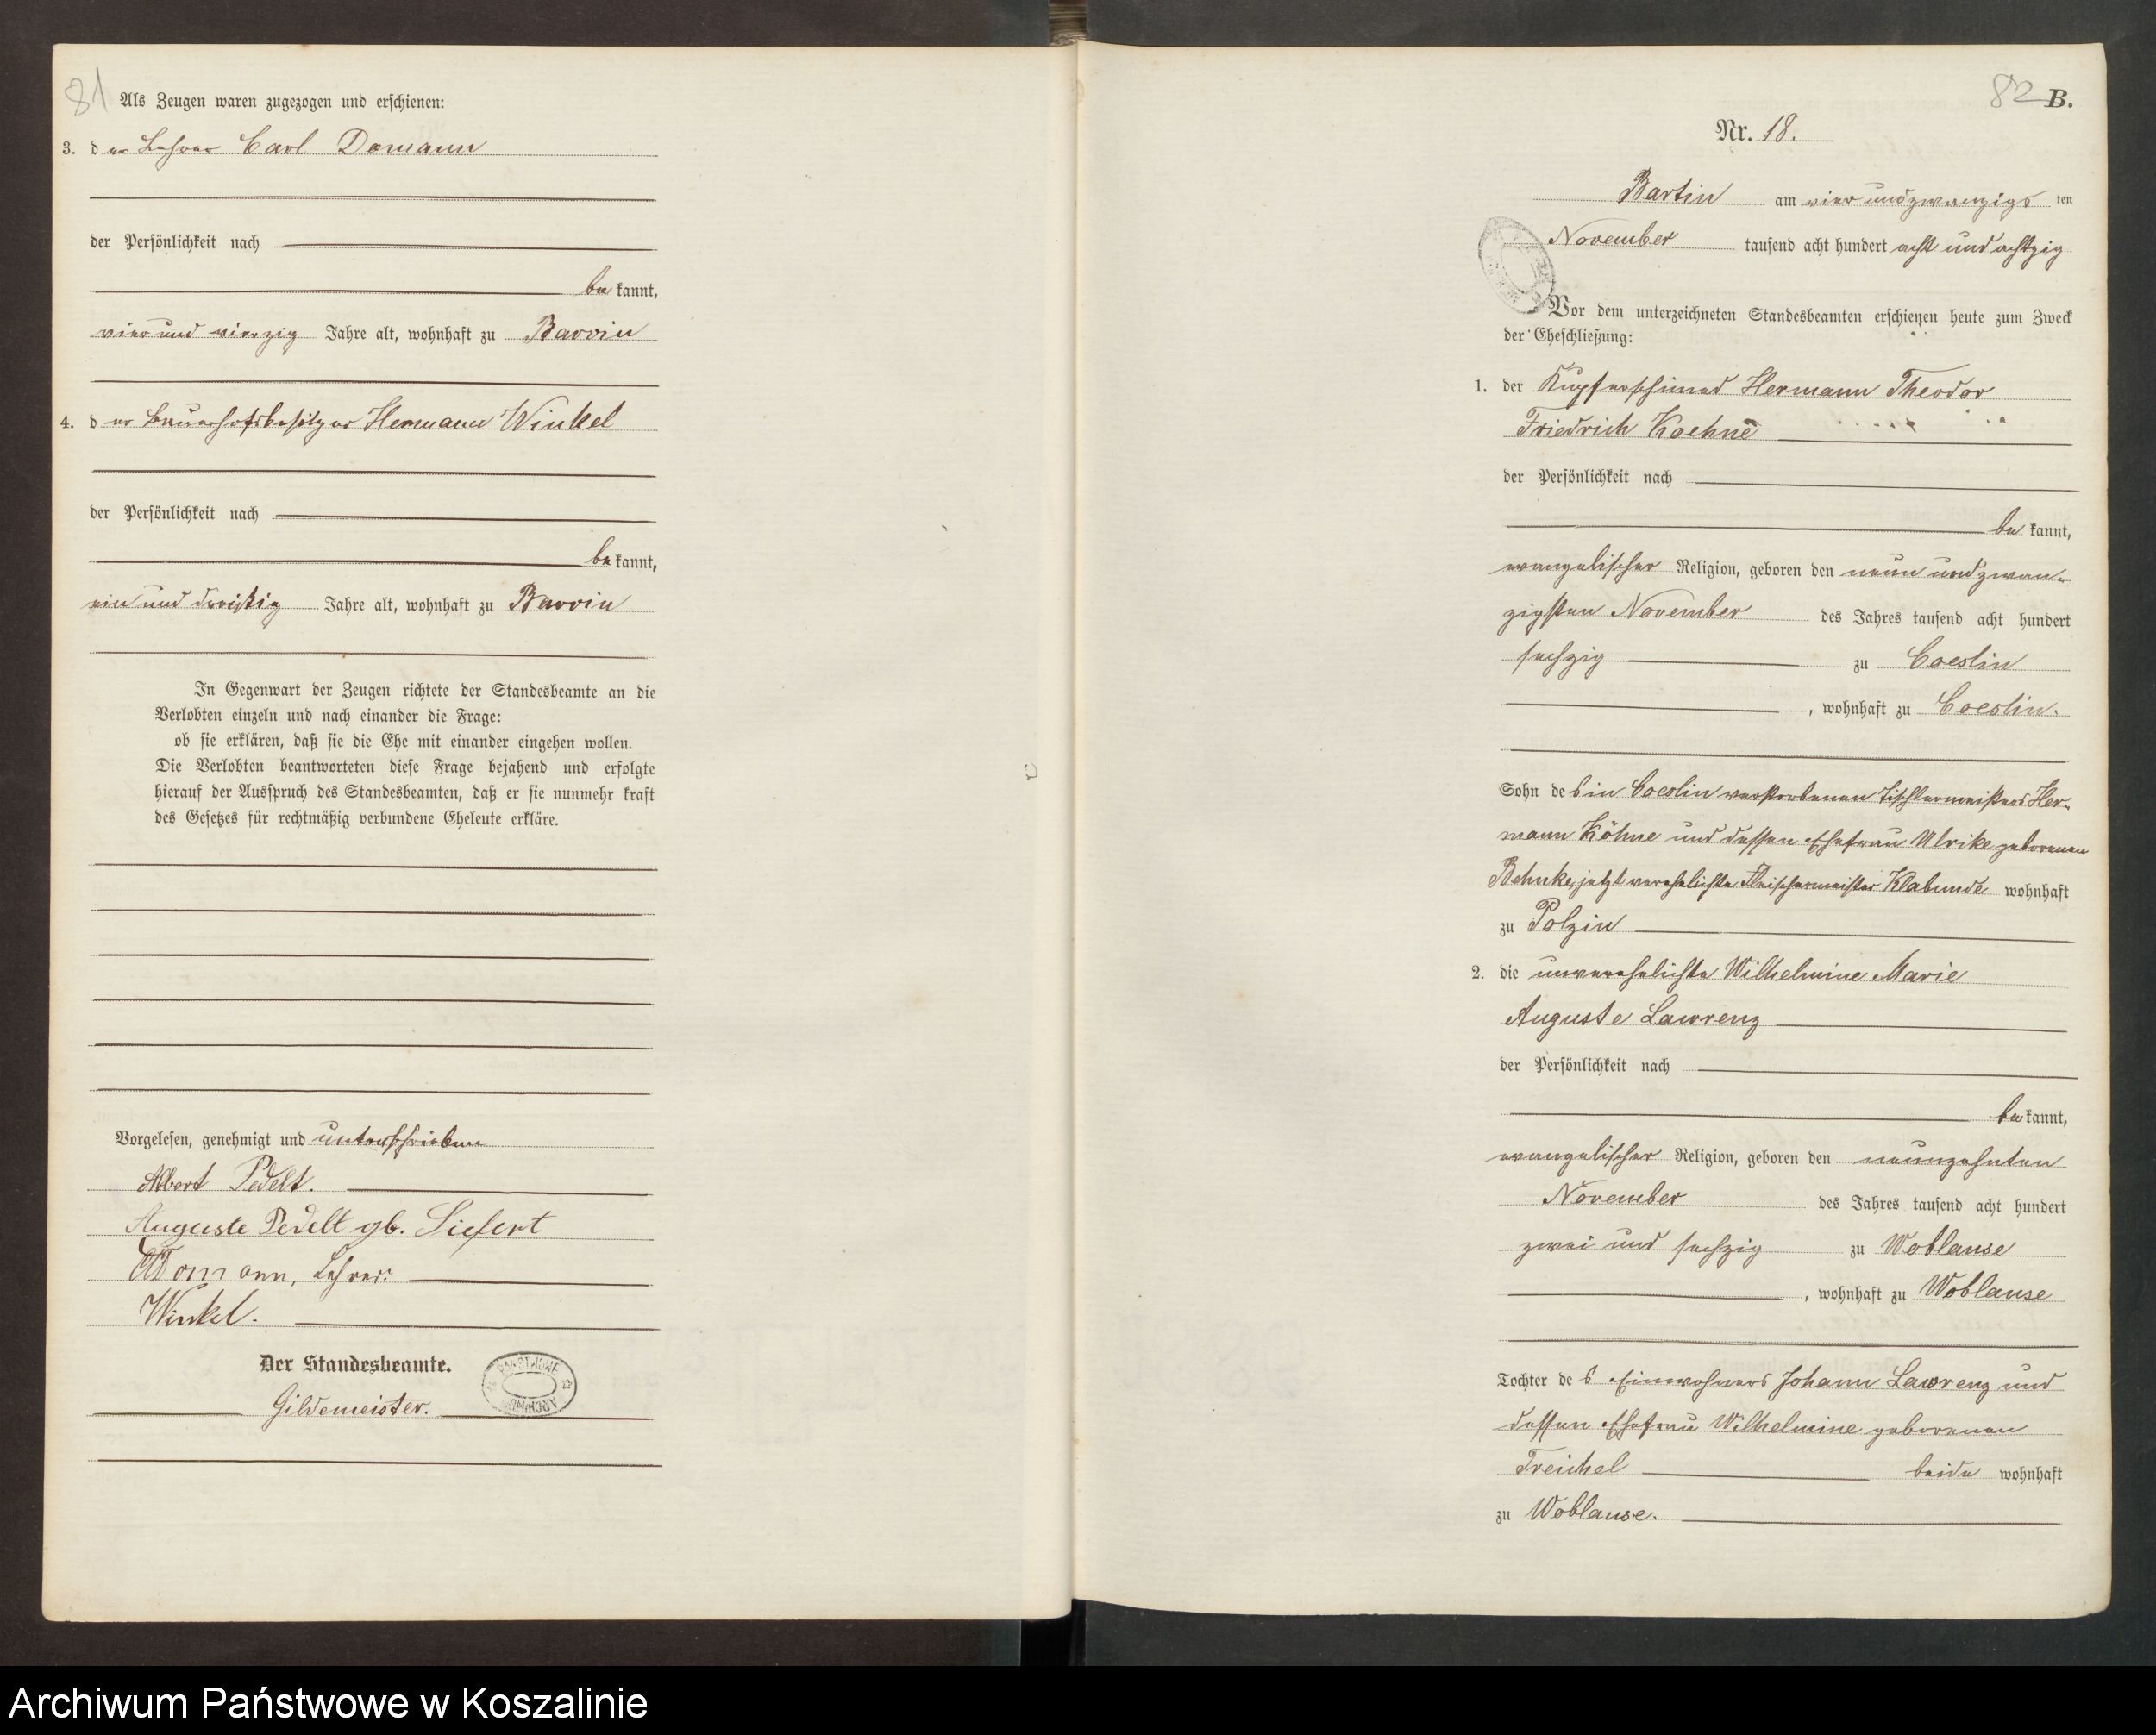 81
Als Zeugen waren zugezogen und erschienen:
3. der Lehrer Carl Domann
der Persönlichkeit nach
bekannt,
vier und vierzig Jahre alt, wohnhaft zu Barvin
4. der Bauerhofsbesitzer Hermann Winkel
der Persönlichkeit nach
bekannt,
ein und dreißig Jahre alt, wohnhaft zu Barvin
In Gegenwart der Zeugen richtete der Standesbeamte an die
Verlobten einzeln und nach einander die Frage:
ob sie erklären, daß sie die Ehe mit einander eingehen wollen.
Die Verlobten beantworteten diese Frage bejahend und erfolgte
hierauf der Ausspruch des Standesbeamten, daß er sie nunmehr kraft
des Gesetzes für rechtmäßig verbundene Eheleute erkläre.
Vorgelesen, genehmigt und unterschrieben
Albert Pedelt.
Auguste Pedelt gb. Siefert
Domann, Lehrer.
Winkel.
Der Standesbeamte.
Gildemeister.
82 B.
Nr. 18.
Bartin am vier und zwanzigsten
November tausend acht hundert acht und achtzig
Vor dem unterzeichneten Standesbeamten erschienen heute zum Zweck
der Eheschließung:
1. der Kupferschmied Hermann Theodor
Friedrich Koehne
der Persönlichkeit nach
bekannt,
evangelischer Religion, geboren den neun und zwan-
zigsten November des Jahres tausend acht hundert
sechzig zu Coeslin
, wohnhaft zu Coeslin.
Sohn des in Coeslin verstorbenen Tischlermeisters Her-
mann Köhne und dessen Ehefrau Ulrike geborenen
Behnke, jetzt verehelichte Fleischermeister Klabunde wohnhaft
zu Polzin
2. die unverehelichte Wilhelmine Marie
Auguste Lawrenz
der Persönlichkeit nach
bekannt,
evangelischer Religion, geboren den neunzehnten
November des Jahres tausend acht hundert
zwei und sechzig zu Woblanse
, wohnhaft zu Woblanse
Tochter des Einwohners Johann Lawrenz und
dessen Ehefrau Wilhelmine geborenen
Treichel beide wohnhaft
zu Woblanse.
Archiwum Państwowe w Koszalinie